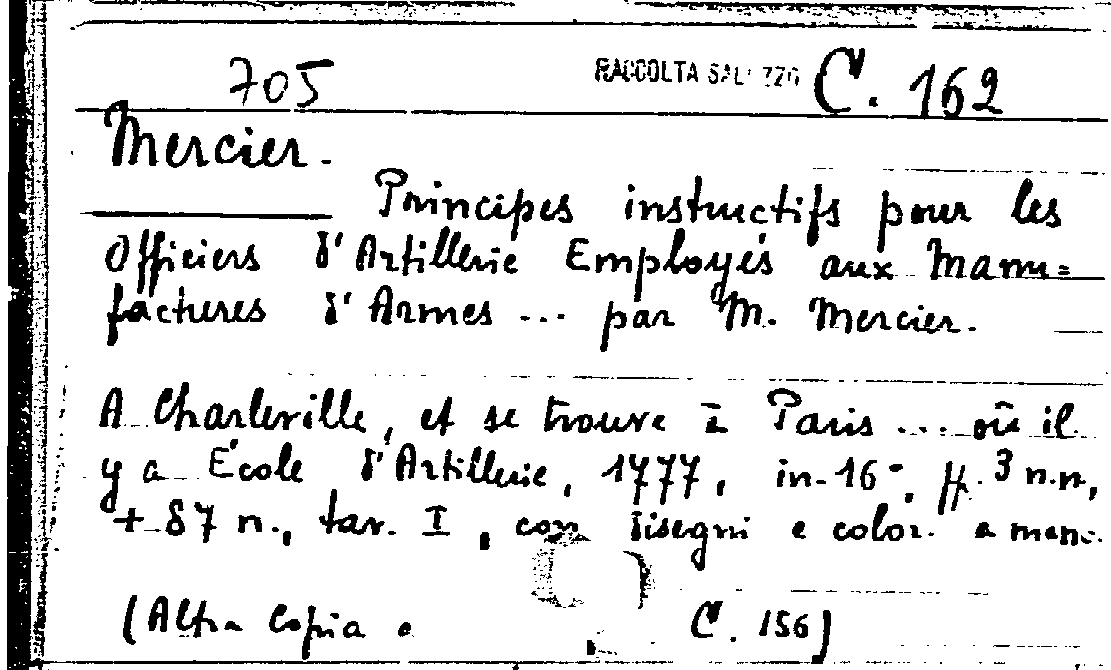 705 RACCOLTA C. 162
Mercier.
Principes instructifs pour les
Officiers d'Artillerie Employés aux Manu=
factures d'Armes ... par M. Mercier.
A Charleville, et se trouve à Paris ... où il
y a École d'Artillerie, 1777, in-16°, ff. 3 n.n,
+ 87 n., tav. I, con disegni e color. a man.
(Altra Copia C. 156)